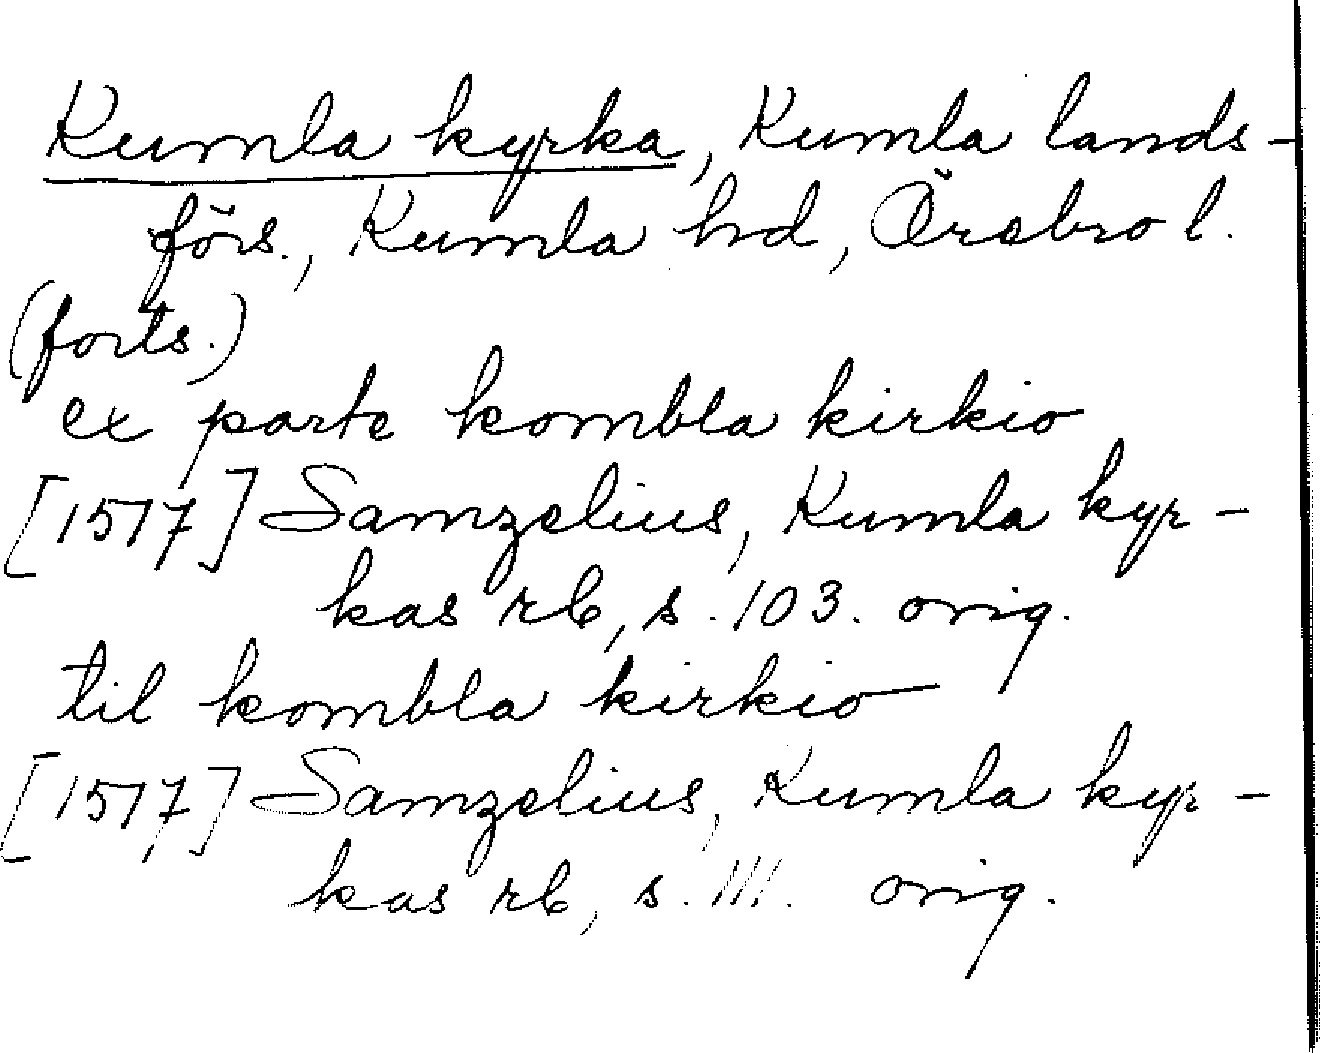 Kumla kyrka, Kumla lands-
förs., Kumla hd, Örebro l.
(forts.)
ex parte kombla kirkio
[1517] Samzelius, Kumla kyr-
kas rb, s. 103. orig.
til kombla kirkio
[1517] Samzelius, Kumla kyr-
kas rb, s. 111. orig.